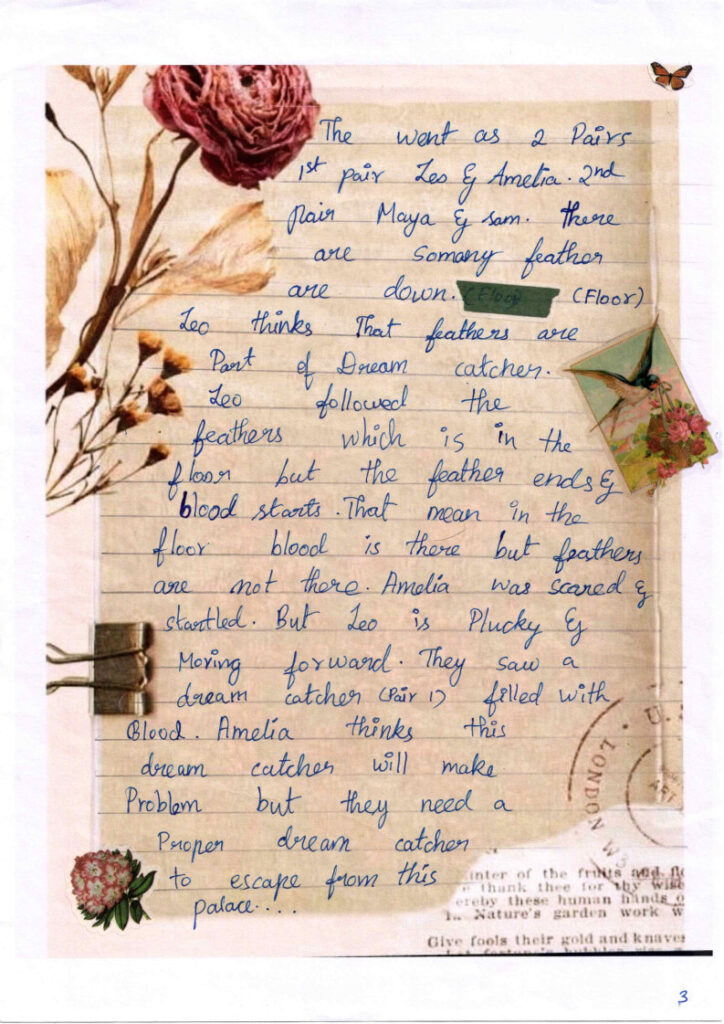 The went as 2 Pairs
1st pair Leo & Amelia. 2nd
Pair Maya & sam. there
are somany feather
are down. (Floor) (Floor)
Leo thinks That feathers are
Part of Dream catcher.
Leo followed the
feathers which is in the
floor but the feather ends &
blood starts. That mean in the
floor blood is there but feathers
are not there. Amelia was scared &
startled. But Leo is Plucky &
Moving forward. They saw a
dream catcher (Pair 1) filled with
Blood. Amelia thinks this
dream catcher will make
Problem but they need a
Proper dream catcher
to escape from this
palace....
LONDON W3
ART
inter of the fruits and
thank thee for thy wise
ereby these human hands
In Nature's garden work w
Give fools their gold and knaves
3